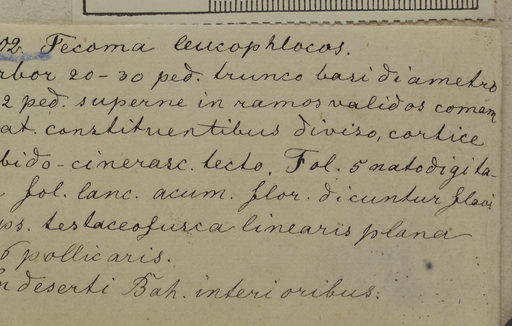 02. Tecoma leucophlocos.
rbor 20-30 ped. trunco basi diametro
2 ped. superne in ramos validos comam
at. constituentibus diviso, cortice
bido-cinerasc. tecto. Fol. 5 natodigita-
fol. lanc. acum. flor. dicuntur flavi
ps. testaceofusca linearis plana
6 pollicaris.
n deserti Bah. interioribus.